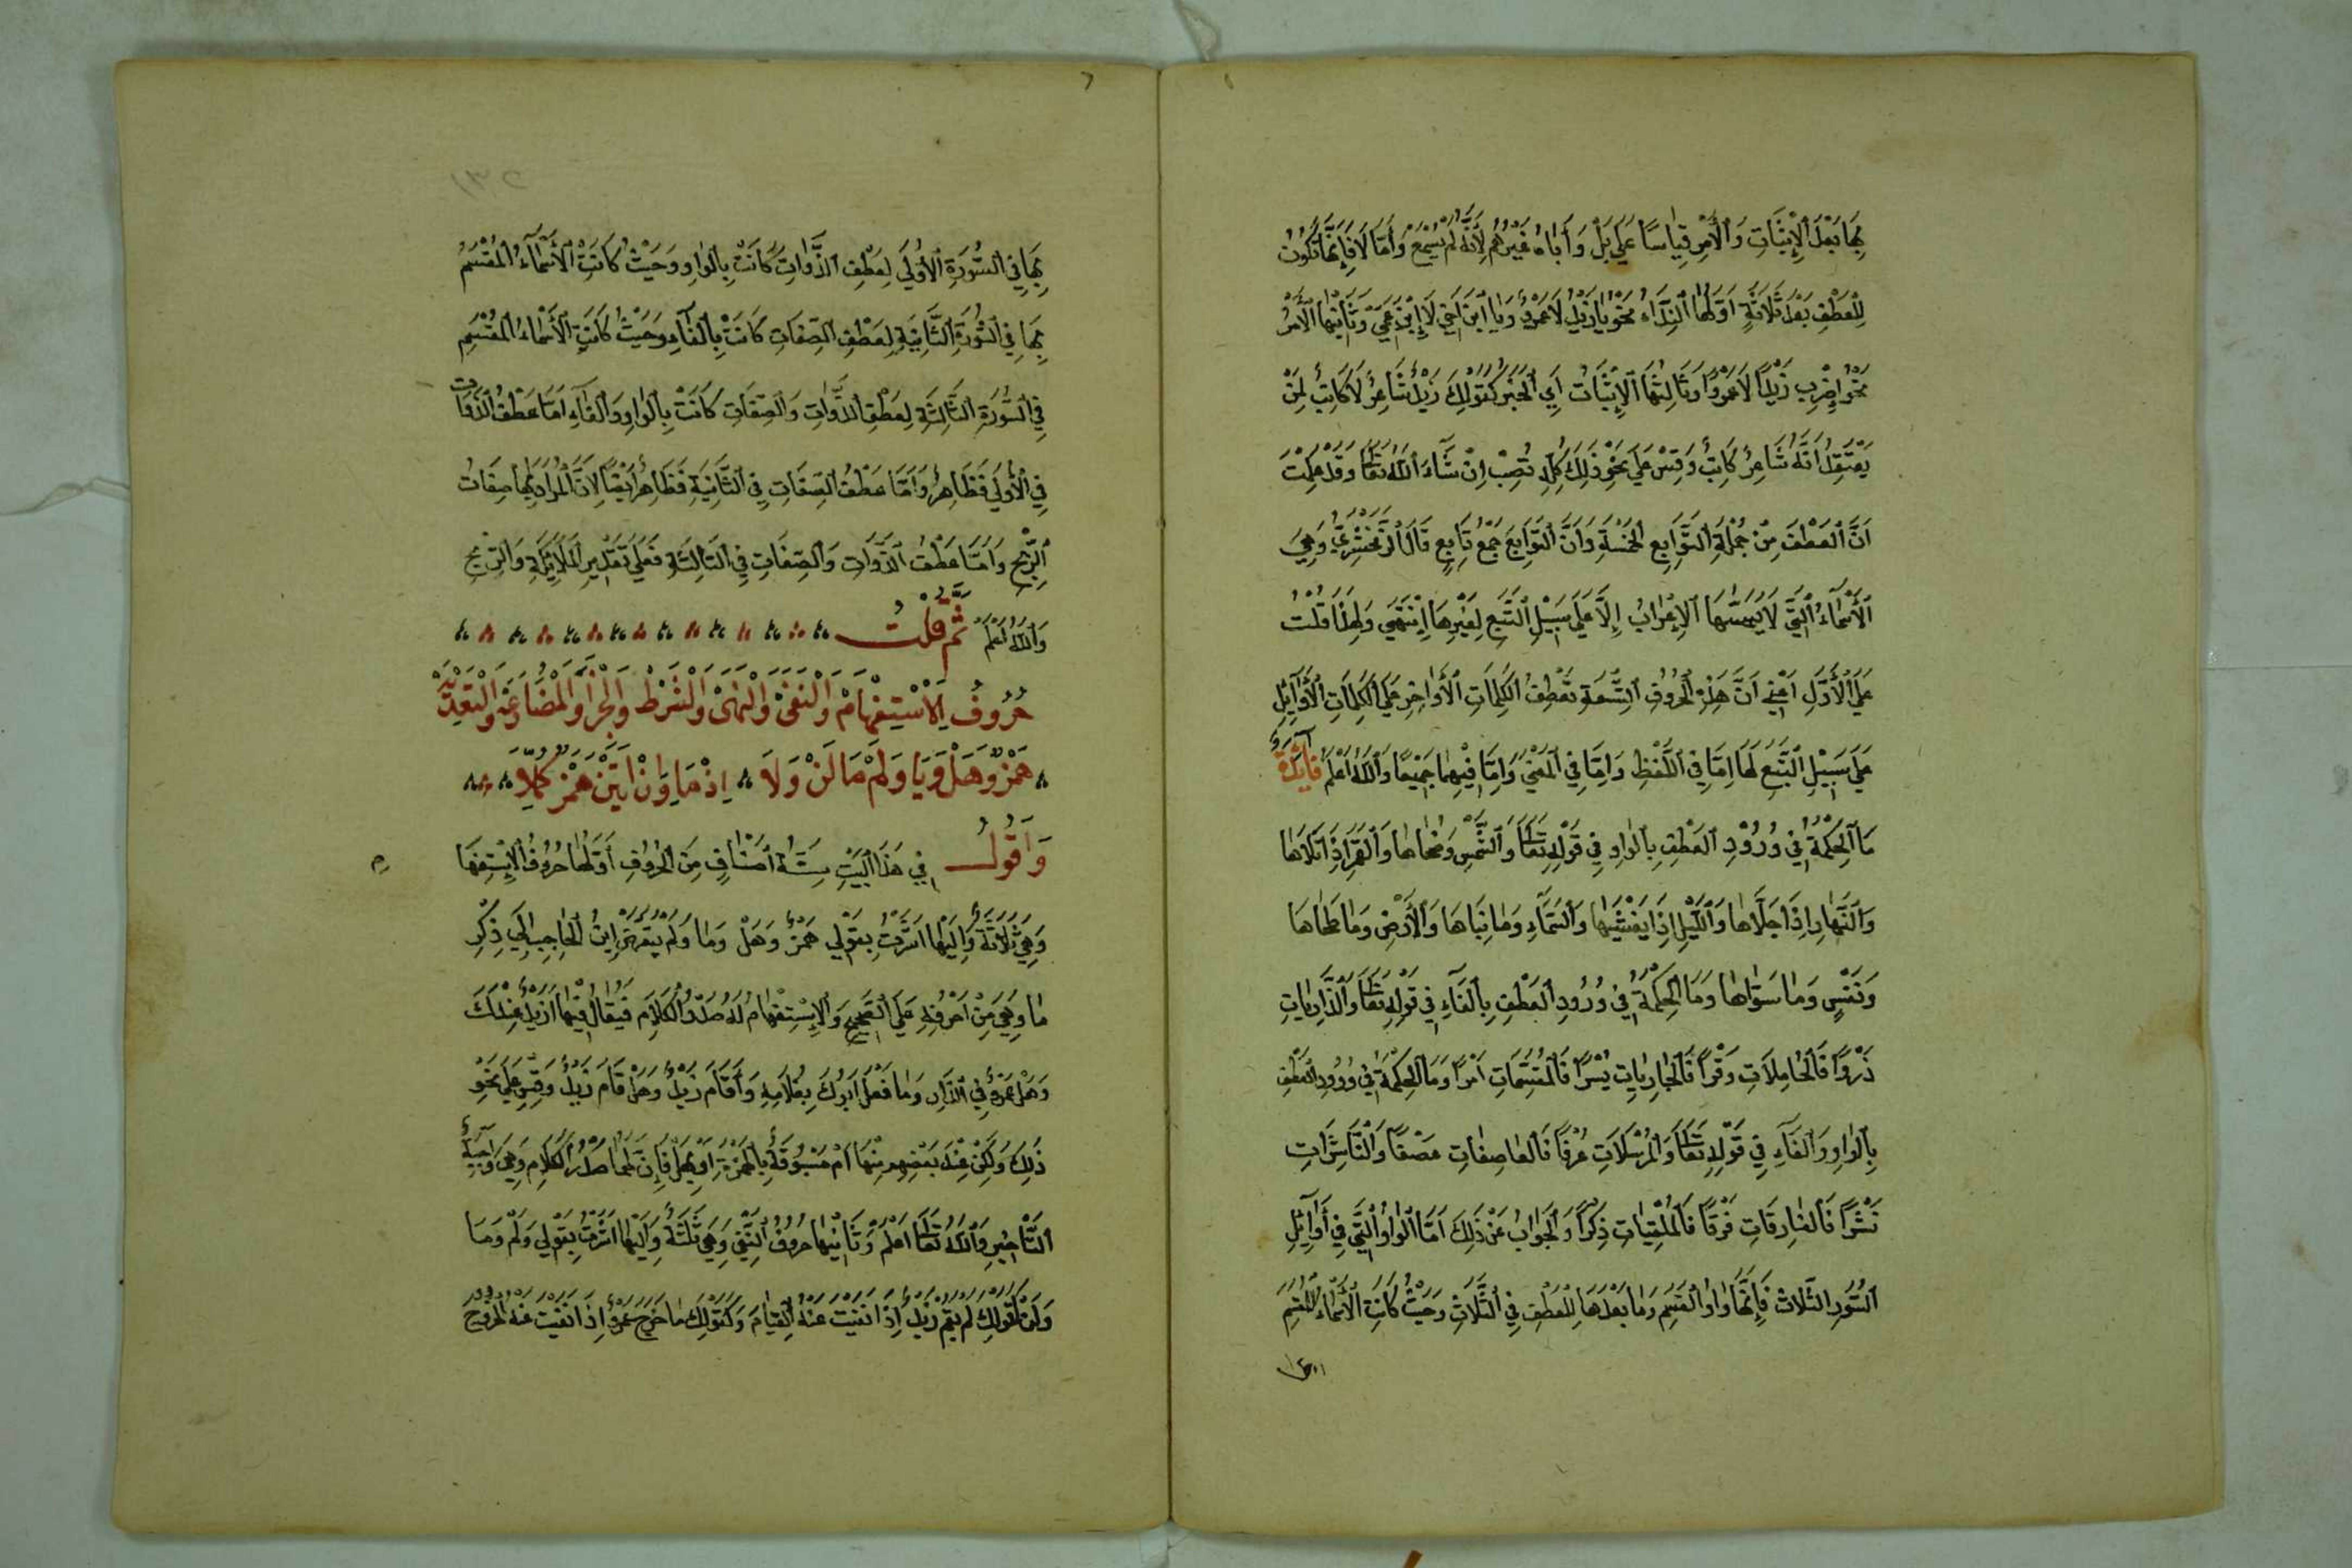 بِهَا بَعْدَ الْإِثْبَاتِ وَالْأَمْرِ قِيَاسًا عَلَى بَلْ وَأَبَاهُ غَيْرُهُمْ لِأَنَّهُ لَمْ يُسْمَعْ وَأَمَّا لَا فَإِنَّمَا تَكُونُ
لِلْعَطْفِ بَعْدَ ثَلَاثَةٍ أَوَّلُهَا النِّدَاءُ نَحْوُ يَا زَيْدُ لَا عَمْرُو وَيَا ابْنَ أَخِي لَا ابْنَ عَمِّي وَثَانِيهَا الْأَمْرُ
نَحْوُ اِضْرِبْ زَيْدًا لَا عَمْرًوا وَثَالِثُهَا الْإِثْبَاتُ أَيِ الْخَبَرُ كَقَوْلِكَ زَيْدٌ شَاعِرٌ لَا كَاتِبٌ لِمَنْ
يَعْتَقِدُ أَنَّهُ شَاعِرٌ كَاتِبٌ وَقِسْ عَلَى نَحْوِ ذَلِكَ كُلِّهِ تُصِبْ اِنْ شَاءَ اللَّهُ تَعَالَى وَقَدْ عَلِمْتَ
اَنَّ الْعَطْفَ مِنْ جُمْلَةِ التَّوَابِعِ الْخَمْسَةِ وَاَنَّ التَّوَابِعَ جَمْعُ تَابِعٍ قَالَ الزَّمَخْشَرِيُّ وَهِيَ
الْأَسْمَاءُ الَّتِي لَا يَمَسُّهَا الْإِعْرَابُ إِلَّا عَلَى سَبِيْلِ التَّبَعِ لِغَيْرِهَا اِنْتَهَى وَلِهَذَا قُلْتُ
عَلَى الْأَوَّلِ اَعْنِي اَنَّ هَذِهِ الْحُرُوفَ التِّسْعَةَ تَعْطِفُ الْكَلِمَاتِ الْأَوَاخِرِ عَلَى الْكَلِمَاتِ الْأَوَائِلِ
عَلَى سَبِيْلِ التَّبَعِ لَهَا اِمَّا فِي اللَّفْظِ وَاِمَّا فِي الْمَعْنَى وَاِمَّا فِيْهِمَا جَمِيْعًا وَاللَّهُ اَعْلَمُ فَائِدَةٌ
مَا الْحِكْمَةُ فِي وُرُوْدِ الْعَطْفِ بِالْوَاوِ فِي قَوْلِهِ تَعَالَى وَالشَّمْسِ وَضُحَاهَا وَالْقَمَرِ اِذَا تَلَاهَا
وَالنَّهَارِ اِذَا جَلَّاهَا وَاللَّيْلِ اِذَا يَغْشَيهَا وَالسَّمَاءِ وَمَا بَنَاهَا وَالْأَرْضِ وَمَا طَحَاهَا
وَنَفْسٍ وَمَا سَوَّاهَا وَمَا الْحِكْمَةُ فِي وُرُودِ الْعَطْفِ بِالْفَاءِ فِي قَوْلِهِ تَعَالَى وَالذَّارِيَاتِ
ذَرْوًا فَالْحَامِلَاتِ وِقْرًا فَالْجَارِيَاتِ يُسْرًا فَالْمُقَسِّمَاتِ اَمْرًا وَمَا الْحِكْمَةُ فِي وُرُودِ الْعَطْفِ
بِالْوَاوِ وَالْفَاءِ فِي قَوْلِهِ تَعَالَى وَالْمُرْسَلَاتِ عُرْفًا فَالْعَاصِفَاتِ عَصْفًا وَالنَّاشِرَاتِ
نَشْرًا فَالْفَارِقَاتِ فَرْقًا فَالْمُلْقِيَاتِ ذِكْرًا وَالْجَوَابُ عَنْ ذَلِكَ اَمَّا الْوَاوُ الَّتِي فِي أَوَائِلِ
السُّوَرِ الثَّلَاثِ فَإِنَّهَا وَاوُ الْقَسَمِ وَمَا بَعْدَهَا لِلْعَطْفِ فِي الثَّلَاثِ وَحَيْثُ كَانَتِ الْأَسْمَاءُ الْمُقْسَمُ
بِهَا فِي السُّورَةِ الْأُولَى لِعَطْفِ الذَّوَاتِ كَانَتْ بِالْوَاوِ وَحَيْثُ كَانَتِ الْأَسْمَاءُ الْمُقْسَمُ
بِهَا فِي السُّورَةِ الثَّانِيَةِ لِعَطْفِ الصِّفَاتِ كَانَتْ بِالْفَاءِ وَحَيْثُ كَانَتِ الْأَسْمَاءُ الْمُقْسَمِ
فِي السُّورَةِ الثَّالِثَةِ لِعَطْفِ الذَّوَاتِ وَالصِّفَاتِ كَانَتْ بِالْوَاوِ وَالْفَاءِ اَمَّا عَطْفُ الذَّوَاتِ
فِي الْأُولَى فَظَاهِرٌ وَاَمَّا عَطْفُ الصِّفَاتِ فِي الثَّانِيَةِ فَظَاهِرٌ اَيْضًا لِاَنَّ الْمُرَادَ بِهَا صِفَاتُ
الرِّيْحِ وَاَمَّا عَطْفُ الذَّوَاتِ وَالصِّفَاتِ فِي الثَّالِثَةِ فَعَلَى تَقْدِيرِ الْمَلَائِكَةِ وَالرِّيْحِ
وَاللَّهُ اَعْلَمُ ثُمَّ قُلْتُ
حُرُوفُ الْاَسْتِفْهَامْ وَالْنَفَىْ وَالْنَهَىْ وَالْشَرْطْ وَالْجَزَا وَالْمُضَارَعَهْ وَالْتَعْدِيَهْ
هَمْزٌ وَهَلْ وَيَا وَلَمْ مَا لَنْ وَلَا اِذْ مَا وَاِنْ اَتَيْنَ هَمْزٌ كُلًّا
وَاَقُولُ فِي هَذَا الْبَيْتِ سِتَّةُ اَصْنَافٍ مِنَ الْحُرُوفِ اَوَّلُهَا حُرُوفُ الْاِسْتِفْهَا
م
وَهِيَ ثَلَاثَةٌ وَاِلَيْهَا اَشَرْتُ بِقَوْلِي هَمْزٌ وَهَلْ وَمَا وَلَمْ يَتَعَرَّضِ ابْنُ الْحَاجِبِ اِلَى ذِكْرِ
مَا وَهِيَ مِنْ اَحْرُفِهِ عَلَى الصَّحِيحِ وَالْاِسْتِفْهَامُ لَهُ صَدْرُ الْكَلَامِ فَيُقَالُ فِيْهَا اَزَيْدٌ عِنْدَكَ
وَهَلْ عَمْرٌو فِي الدَّارِ وَمَا فَعَلَ اَبُوكَ بِغُلَامِهِ وَأَقَامَ زَيْدٌ وَهَلْ قَامَ زَيْدٌ وَقِسْ عَلَى نَحْوِ
ذَلِكَ وَلَكِنْ عِنْدَ بَعْضِهِمْ مِنْهَا اَمْ مَسْبُوقَةً بِالْهَمْزَةِ اَوْ بِهَلْ فَاِنَّ لَهَا صَدْرَ الْكَلَامِ وَهِيَ وَاجِبَةُ
التَّاْخِيرِ وَاللَّهُ تَعَالَى اَعْلَمُ وَثَانِيْهَا حُرُوْفُ النَّفْيِ وَهِيَ ثَلَثَةٌ وَاِلَيْهَا اَشَرْتُ بِقَوْلِي وَلَمْ وَمَا
وَلَنْ كَقَوْلِكَ لَمْ يَقُمْ زَيْدٌ اِذَا نَفَيْتَ عَنْهُ الْقِيَامَ وَكَقَوْلِكَ مَا خَرَجَ عَمْرٌو اِذَا نَفَيْتَ عَنْهُ الْخُرُوجَ